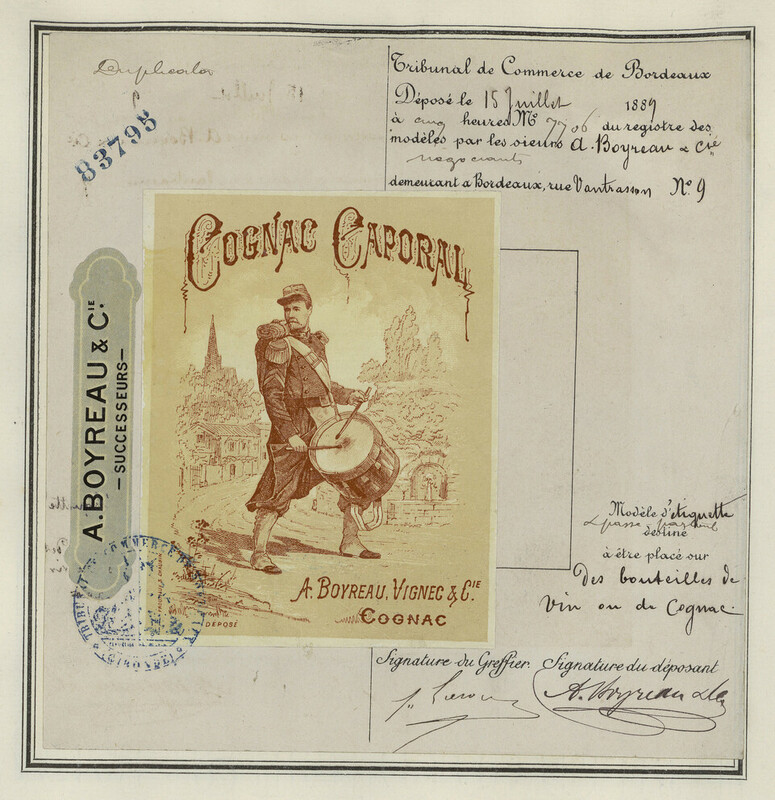 Duplicata
83795
Tribunal de Commerce de Bordeaux
Déposé le 15 Juillet 1889
à cinq heures M N° 7706 du registre des
modèles par les sieurs A. Boyreau & Cie
négociants
demeurant à Bordeaux, rue Vantrasson N° 9
COGNAC CAPORAL
A. BOYREAU & CIE.
— SUCCESSEURS —
A. BOYREAU, VIGNEC & CIE.
COGNAC
DÉPOSÉ
Modèle d'étiquette
& passe partout
destiné
à être placé sur
Des bouteilles de
vin ou de Cognac.
TRIBUNAL DE COMMERCE DE
BORDEAUX
Signature du Greffier. Signature du déposant
A. Boyreau & Cie